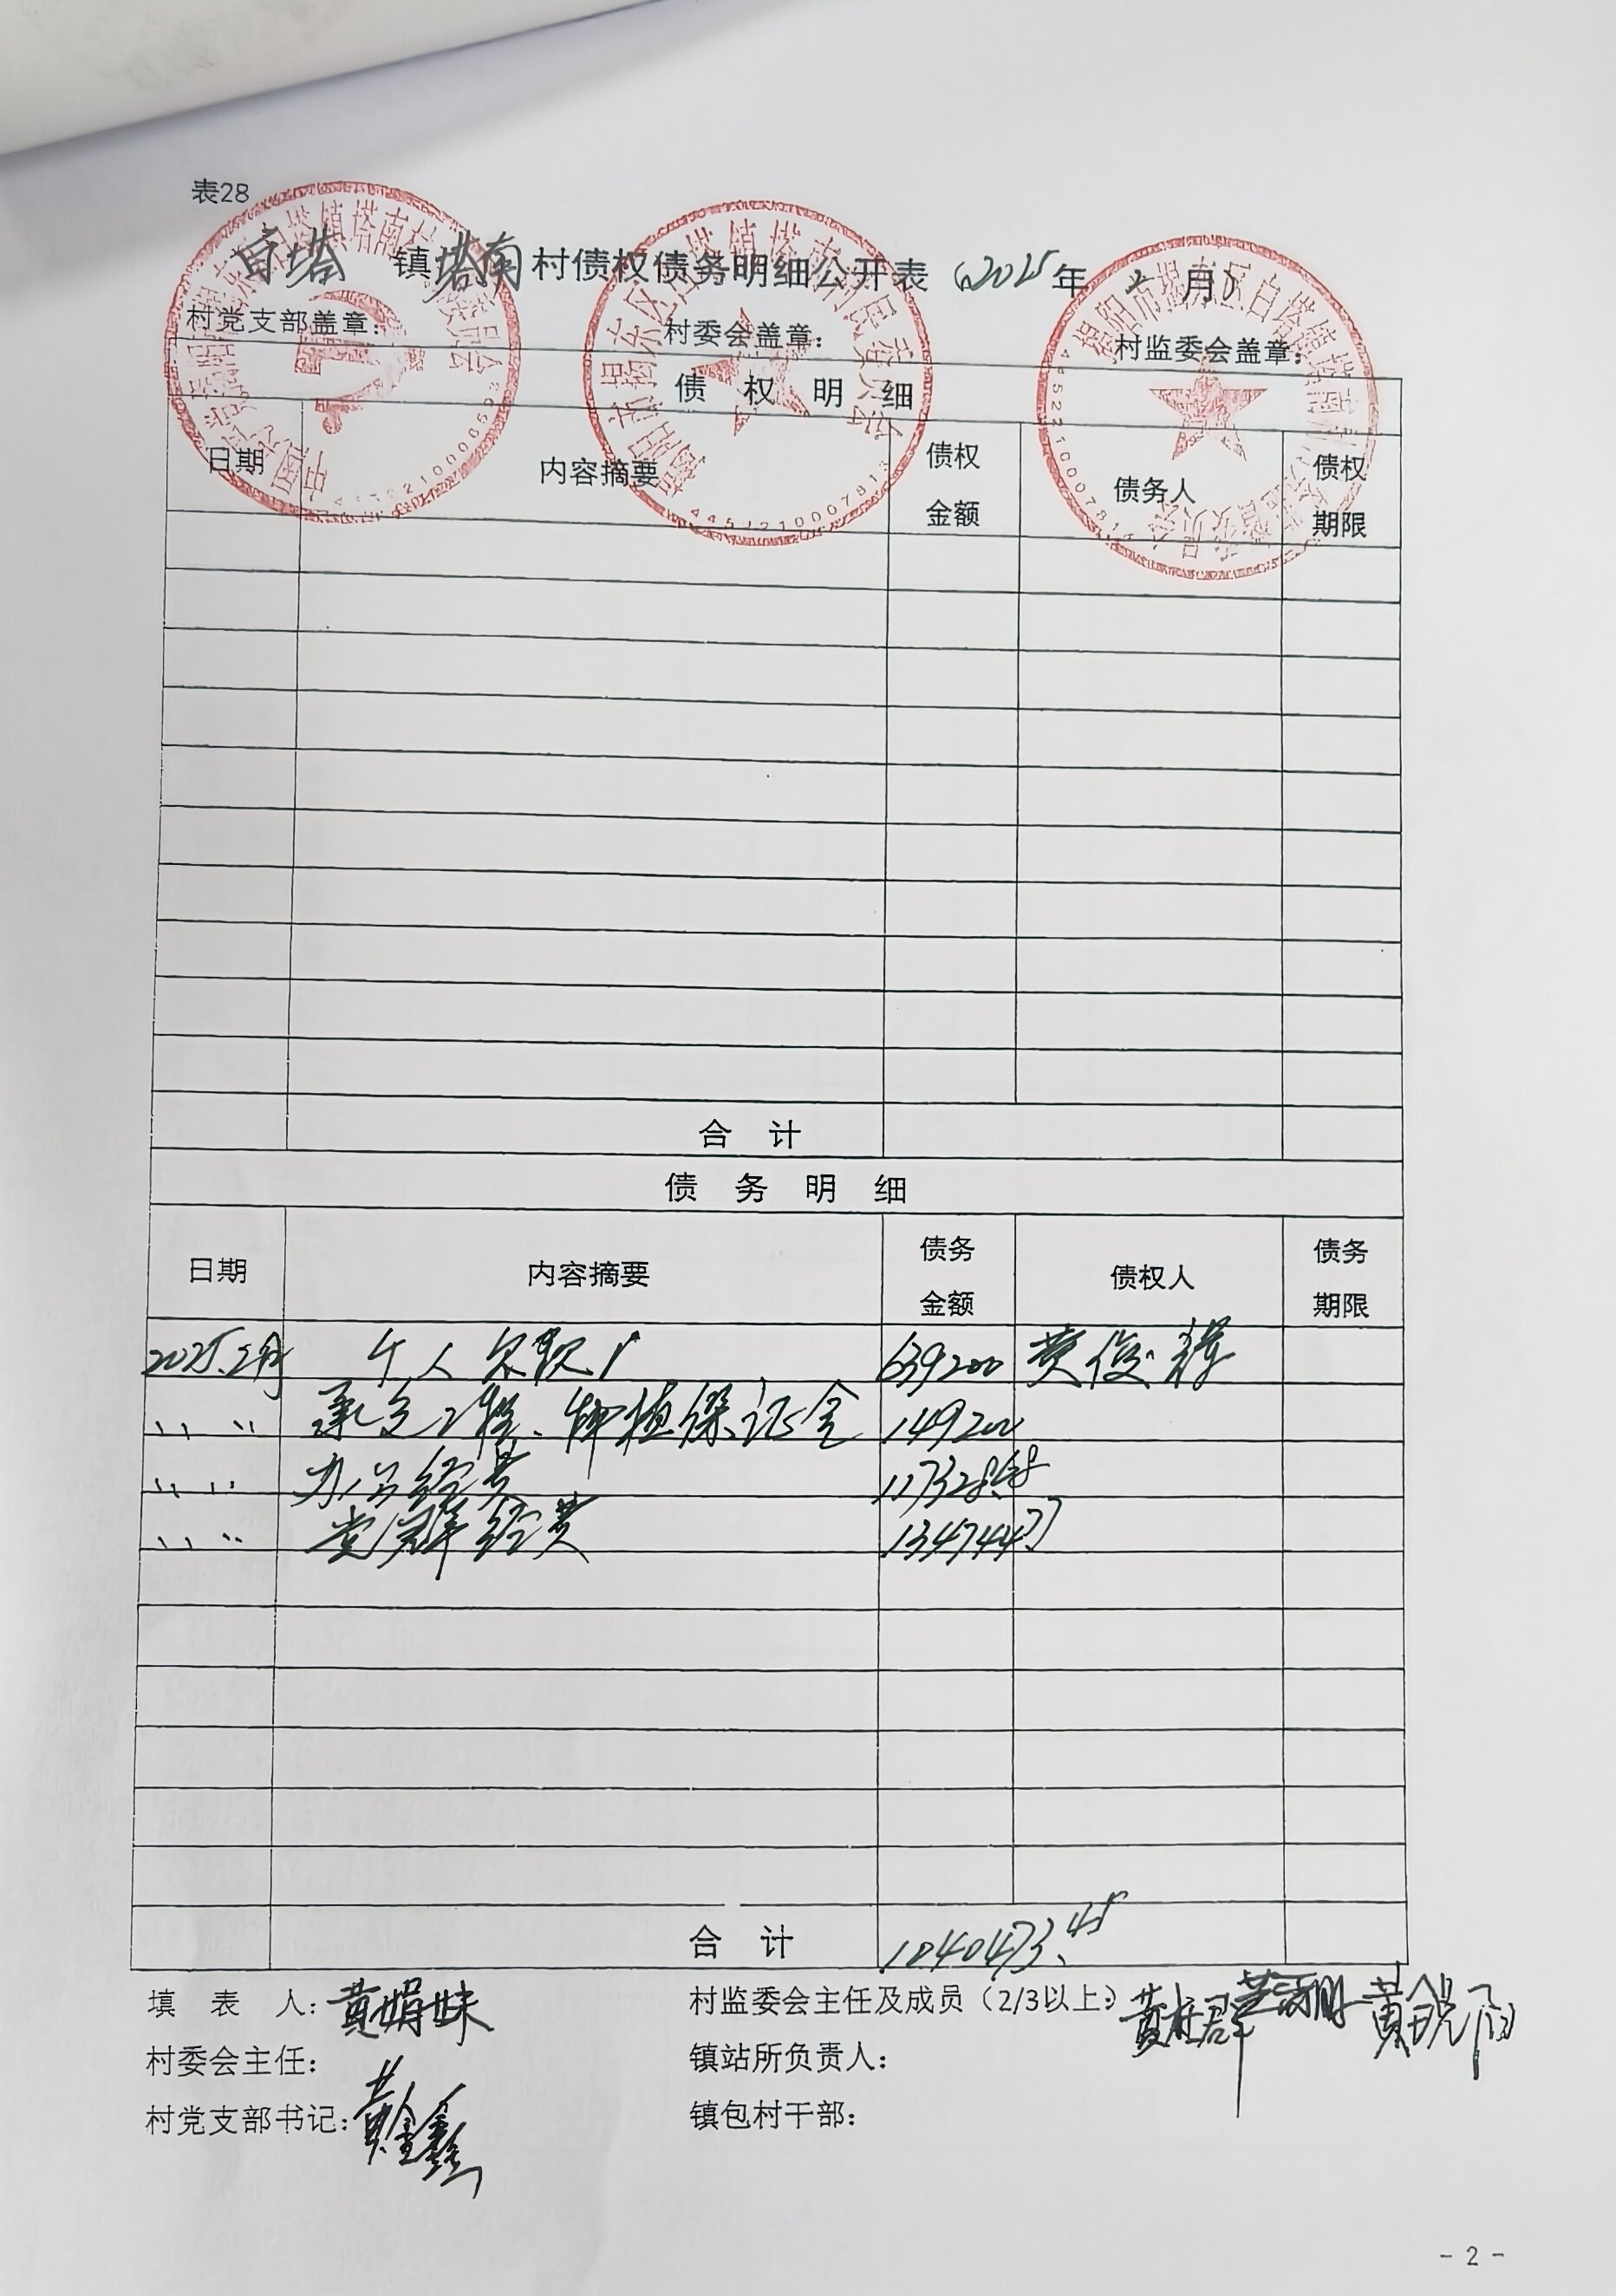 表28
白塔 镇 塔南 村债权债务明细公开表（2025年 2 月）
村党支部盖章： 村委会盖章： 村监委会盖章：
债 权 明 细
日期 内容摘要 债权金额 债务人 债权期限
合 计
债 务 明 细
日期 内容摘要 债务金额 债权人 债务期限
2025.2月 个人欠款 639200 黄俊
〃 〃 承包工程、种植保证金 149200
〃 〃 办公经费 117328.68
〃 〃 党群经费 134744.77
合 计 1040473.45
填 表 人：黄娟妹 村监委会主任及成员（2/3以上）：
村委会主任： 镇站所负责人：
村党支部书记：黄金鑫 镇包村干部：
- 2 -